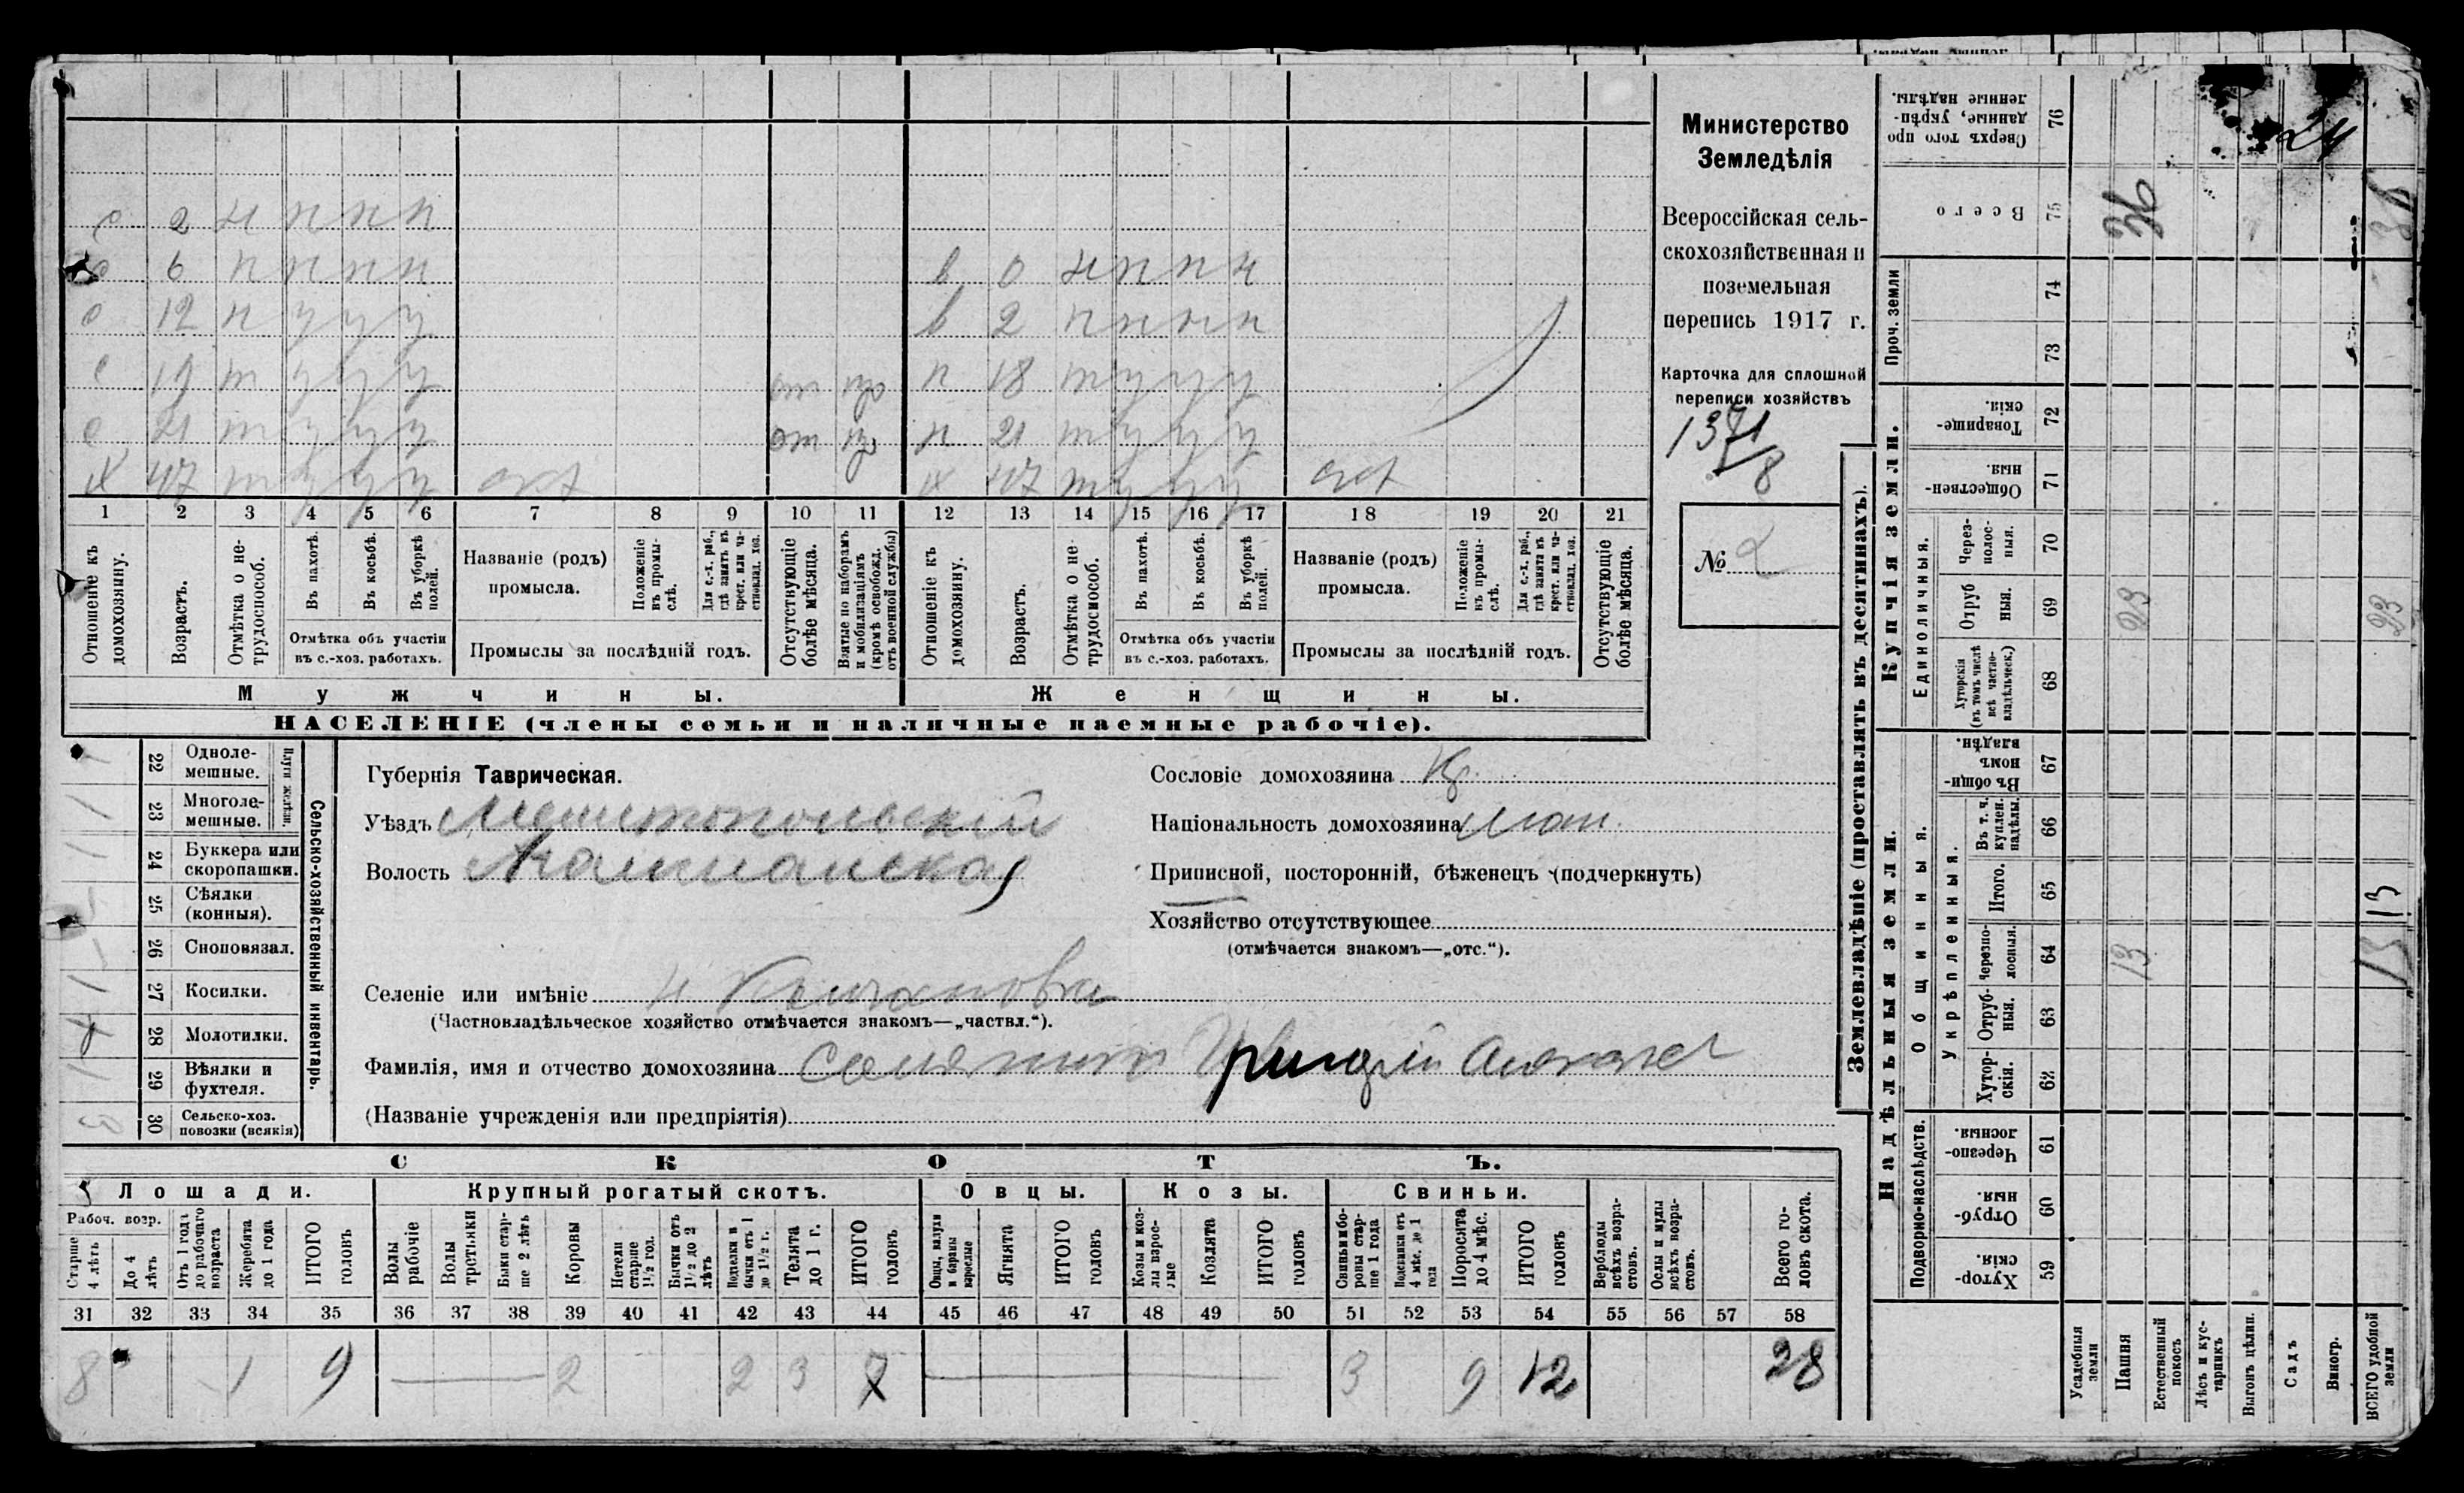 24
с 2 н н н н
с 6 н н н н
в 0 н н н н
с 12 н у у у
в 2 н н н н
с 19 т у у у от пр
п 18 т у у у
с 21 т у у у от пр
п 21 т у у у
х 47 т у у у
х 47 т у у у
1 2 3 4 5 6 7 8 9 10 11 12 13 14 15 16 17 18 19 20 21
Отношеніе къ домохозяину.
Возрастъ.
Отмѣтка о нетрудоспособ.
Въ пахотѣ.
Въ косьбѣ.
Въ уборкѣ полей.
Отмѣтка объ участіи въ с.-хоз. работахъ.
Названіе (родъ) промысла.
Положеніе въ промыслѣ.
Для с.-х. раб., гдѣ занятъ въ крест. или частновлад. хоз.
Промыслы за послѣдній годъ.
Отсутствующіе болѣе мѣсяца.
Взятые по наборамъ и мобилизаціямъ (кромѣ освобожд. отъ военной службы)
Отношеніе къ домохозяину.
Возрастъ.
Отмѣтка о нетрудоспособ.
Въ пахотѣ.
Въ косьбѣ.
Въ уборкѣ полей.
Отмѣтка объ участіи въ с.-хоз. работахъ.
Названіе (родъ) промысла.
Положеніе въ промыслѣ.
Для с.-х. раб., гдѣ занята въ крест. или частновлад. хоз.
Промыслы за послѣдній годъ.
Отсутствующіе болѣе мѣсяца.
Мужчины.
Женщины.
НАСЕЛЕНІЕ (члены семьи и наличные наемные рабочіе).
Министерство
Земледѣлія
Всероссійская сель-
скохозяйственная и
поземельная
перепись 1917 г.
Карточка для сплошной
переписи хозяйствъ
1371/8
№ 2
22 Одноле-мешные.
23 Многоле-мешные.
Плуги желѣзн.
24 Буккера или скоропашки.
25 Сѣялки (конныя).
26 Сноповязал.
27 Косилки.
28 Молотилки.
29 Вѣялки и фухтеля.
30 Сельско-хоз. повозки (всякія)
3
Сельско-хозяйственный инвентарь.
Губернія Таврическая.
Уѣздъ Мелитопольскій
Волость
Сословіе домохозяина Кр.
Національность домохозяина
Приписной, посторонній, бѣженецъ (подчеркнуть)
Хозяйство отсутствующее
(отмѣчается знакомъ—„отс.“).
Селеніе или имѣніе
(Частновладѣльческое хозяйство отмѣчается знакомъ—„частвл.“).
Фамилія, имя и отчество домохозяина
(Названіе учрежденія или предпріятія)
СКОТЪ.
Лошади.
Крупный рогатый скотъ.
Овцы.
Козы.
Свиньи.
Рабоч. возр.
Старше 4 лѣтъ
До 4 лѣтъ
Отъ 1 года до рабочаго возраста
Жеребята до 1 года
ИТОГО головъ
Волы рабочіе
Волы третьяки
Быки старше 2 лѣтъ
Коровы
Нетели старше 1½ год.
Бычки отъ 1½ до 2 лѣтъ
Подтелки и бычки отъ 1 до 1½ г.
Телята до 1 г.
ИТОГО головъ
Овцы, валухи и бараны взрослые
Ягнята
ИТОГО головъ
Козы и козлы взрослые
Козлята
ИТОГО головъ
Свиньи боровы старше 1 года
Подсвинки отъ 4 мѣс. до 1 года
Поросята до 4 мѣс.
ИТОГО головъ
Верблюды всѣхъ возрастовъ.
Ослы и мулы всѣхъ возрастовъ.
Всего головъ скота.
31 32 33 34 35 36 37 38 39 40 41 42 43 44 45 46 47 48 49 50 51 52 53 54 55 56 57 58
8 1 9 2 2 3 7 3 9 12 28
Землевладѣніе (проставлять въ десятинахъ).
Купчія земли.
Надѣльныя земли.
Сверхъ того проданные, укрѣпленные надѣлы. 76
Всего 75
36
36
Проч. земли
74
73
Товарищескія. 72
Общественныя. 71
Единоличныя.
Черезполосныя. 70
Отрубныя. 69
23
23
Хуторскія (въ томъ числѣ всѣ частновладѣльческ.) 68
Общинныя.
Въ общинномъ владѣн. 67
Укрѣпленныя.
Въ т. ч. куплен. надѣлы. 66
Итого. 65
Черезполосныя. 64
13
13
13
Отрубныя. 63
Хуторскія. 62
Подворно-наслѣдств.
Черезполосныя. 61
Отрубныя. 60
Хуторскія. 59
Усадебныя земли
Пашня
Естественный покосъ
Лѣсъ и кустарникъ
Выгонъ цѣлин.
Садъ
Виногр.
ВСЕГО удобной земли